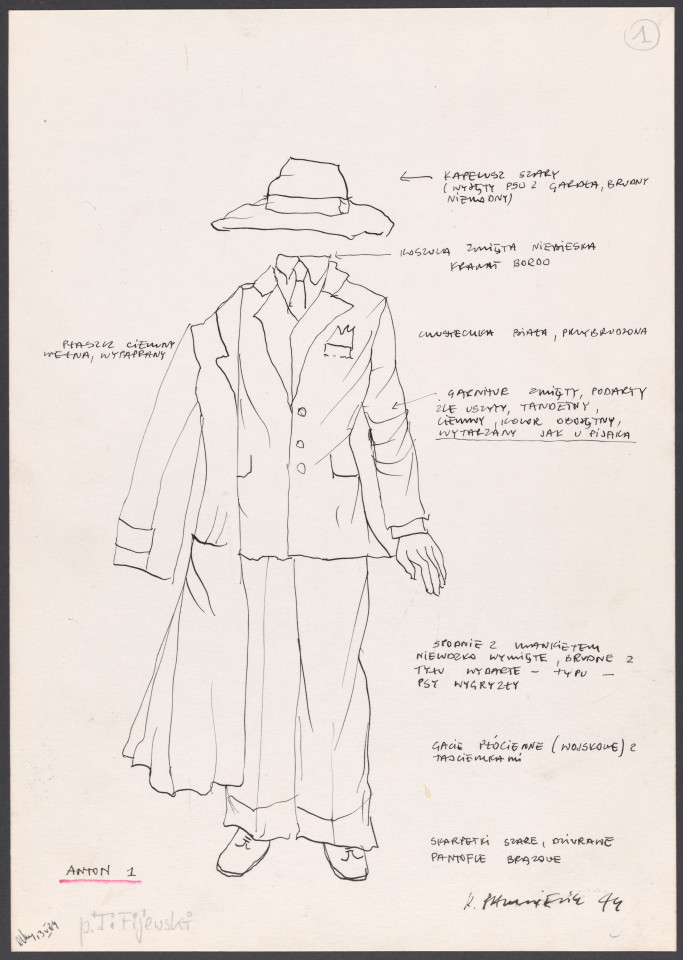 1
KAPELUSZ SZARY
(WYJĘTY PSU Z GARDŁA, BRUDNY
NIEMODNY)
KOSZULA ZMIĘTA NIEBIESKA
KRAWAT BORDO
PŁASZCZ CIEMNY
WEŁNA, WYPAPRANY
CHUSTECZKA BIAŁA, PRZYBRUDZONA
GARNITUR ZMIĘTY, PODARTY
ŹLE USZYTY, TANDETNY,
CIEMNY, KOLOR OBOJĘTNY,
WYTARZANY JAK U PIJAKA
SPODNIE Z MANKIETEM
WYMIĘTE, BRUDNE Z
TYŁU WYDARTE - TYPU -
PSY WYGRYZŁY
GACIE PŁÓCIENNE (WOJSKOWE) Z
TASIEMKAMI
SKARPETKI SZARE, DZIURAWE
PANTOFLE BRĄZOWE
ANTON 1
p. T. Fijewski
K.